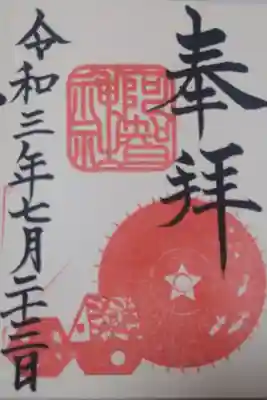 奉拝
阿智
神社
令和三年七月二十三日